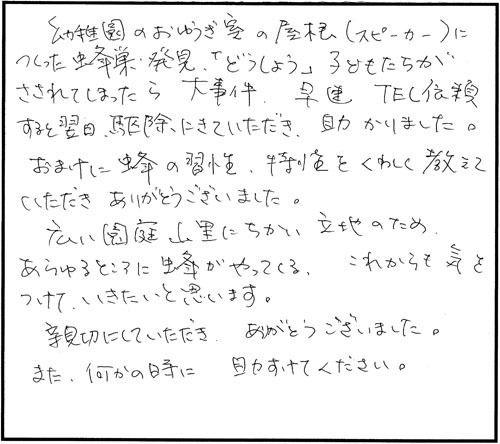 幼稚園のおゆうぎ室の屋根(スピーカー)に
つくった蜂巣発見、「どうしよう」子どもたちが
さされてしまったら 大事件、早速 TEL依頼
すると翌日、駆除にきていただき、助かりました。
おまけに蜂の習性、特性をくわしく教えて
いただき ありがとうございました。
広い園庭 山里にちかい 立地のため、
あらゆるところに蜂がやってくる、これからも気を
つけて、いきたいと思います。
親切にしていただき、ありがとうございました。
また、何かの時に 助けてください。